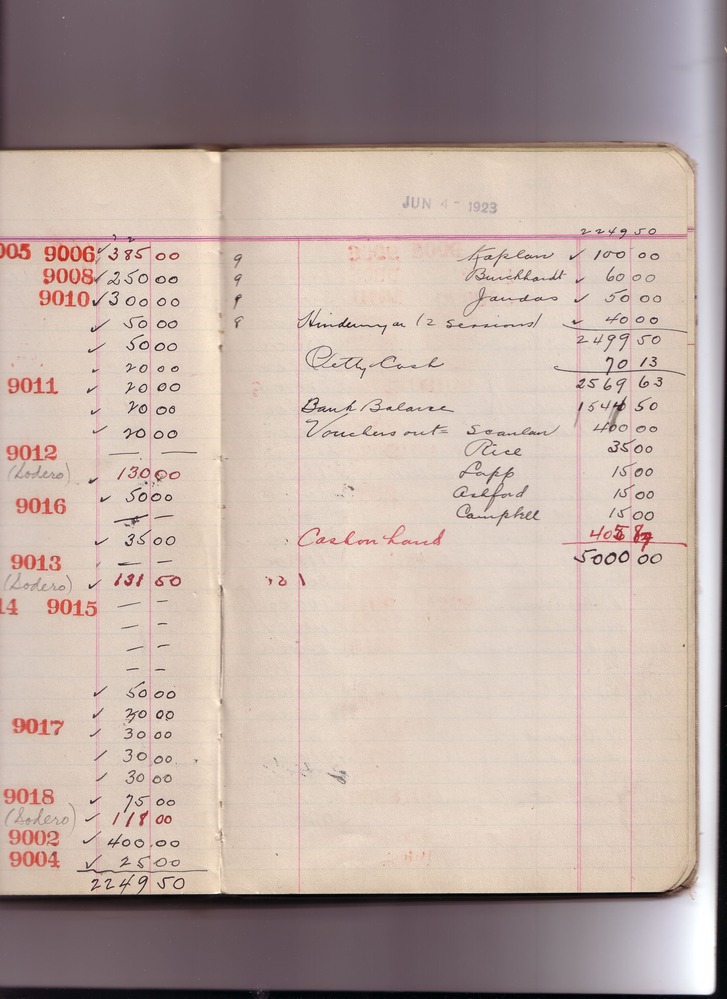 005 9006 ✓ 385 00
9008 ✓ 250 00
9010 ✓ 300 00
✓ 50 00
✓ 50 00
✓ 20 00
9011 ✓ 20 00
✓ 20 00
✓ 20 00
9012 — —
(Sodero) ✓ 130 00
9016 ✓ 50 00
— —
✓ 35 00
9013 — —
(Sodero) ✓ 131 50
14 9015 — —
— —
— —
— —
✓ 50 00
✓ 30 00
9017 ✓ 30 00
✓ 30 00
✓ 30 00
9018 ✓ 75 00
(Sodero) ✓ 118 00
9002 ✓ 400 00
9004 ✓ 25 00
2249 50
JUN 4 - 1923
2249 50
9 Kaplan ✓ 100 00
9 Burckhardt ✓ 60 00
9 Jandas ✓ 50 00
8 (2 sessions) ✓ 40 00
2499 50
Petty Cash 70 13
2569 63
Bank Balance 50
Vouchers out = Scanlan 400 00
Rice 35 00
Lapp 15 00
Ashford 15 00
Campbell 15 00
Cash on hand
5000 00